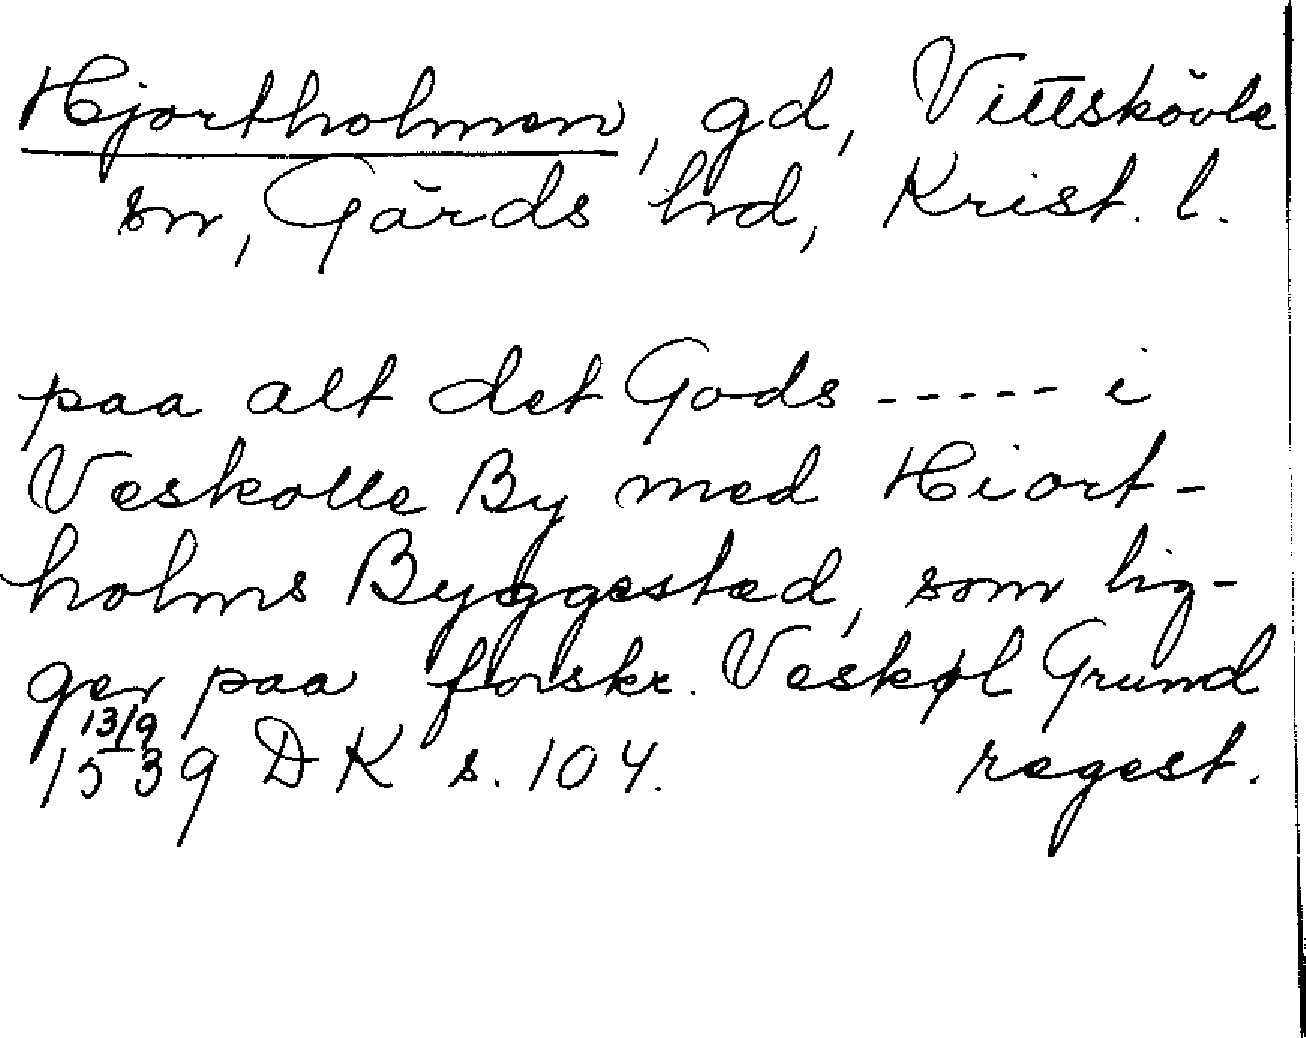 Hjortholmen, gd, Vittskövle
sn, Gärds hd, Krist. l.
paa alt det Gods ----- i
Veskolle By med Hiort-
holms Byggested, som lig-
ger paa forskr. Veskøl Grund
13/9
1539 DK s. 104. regest.